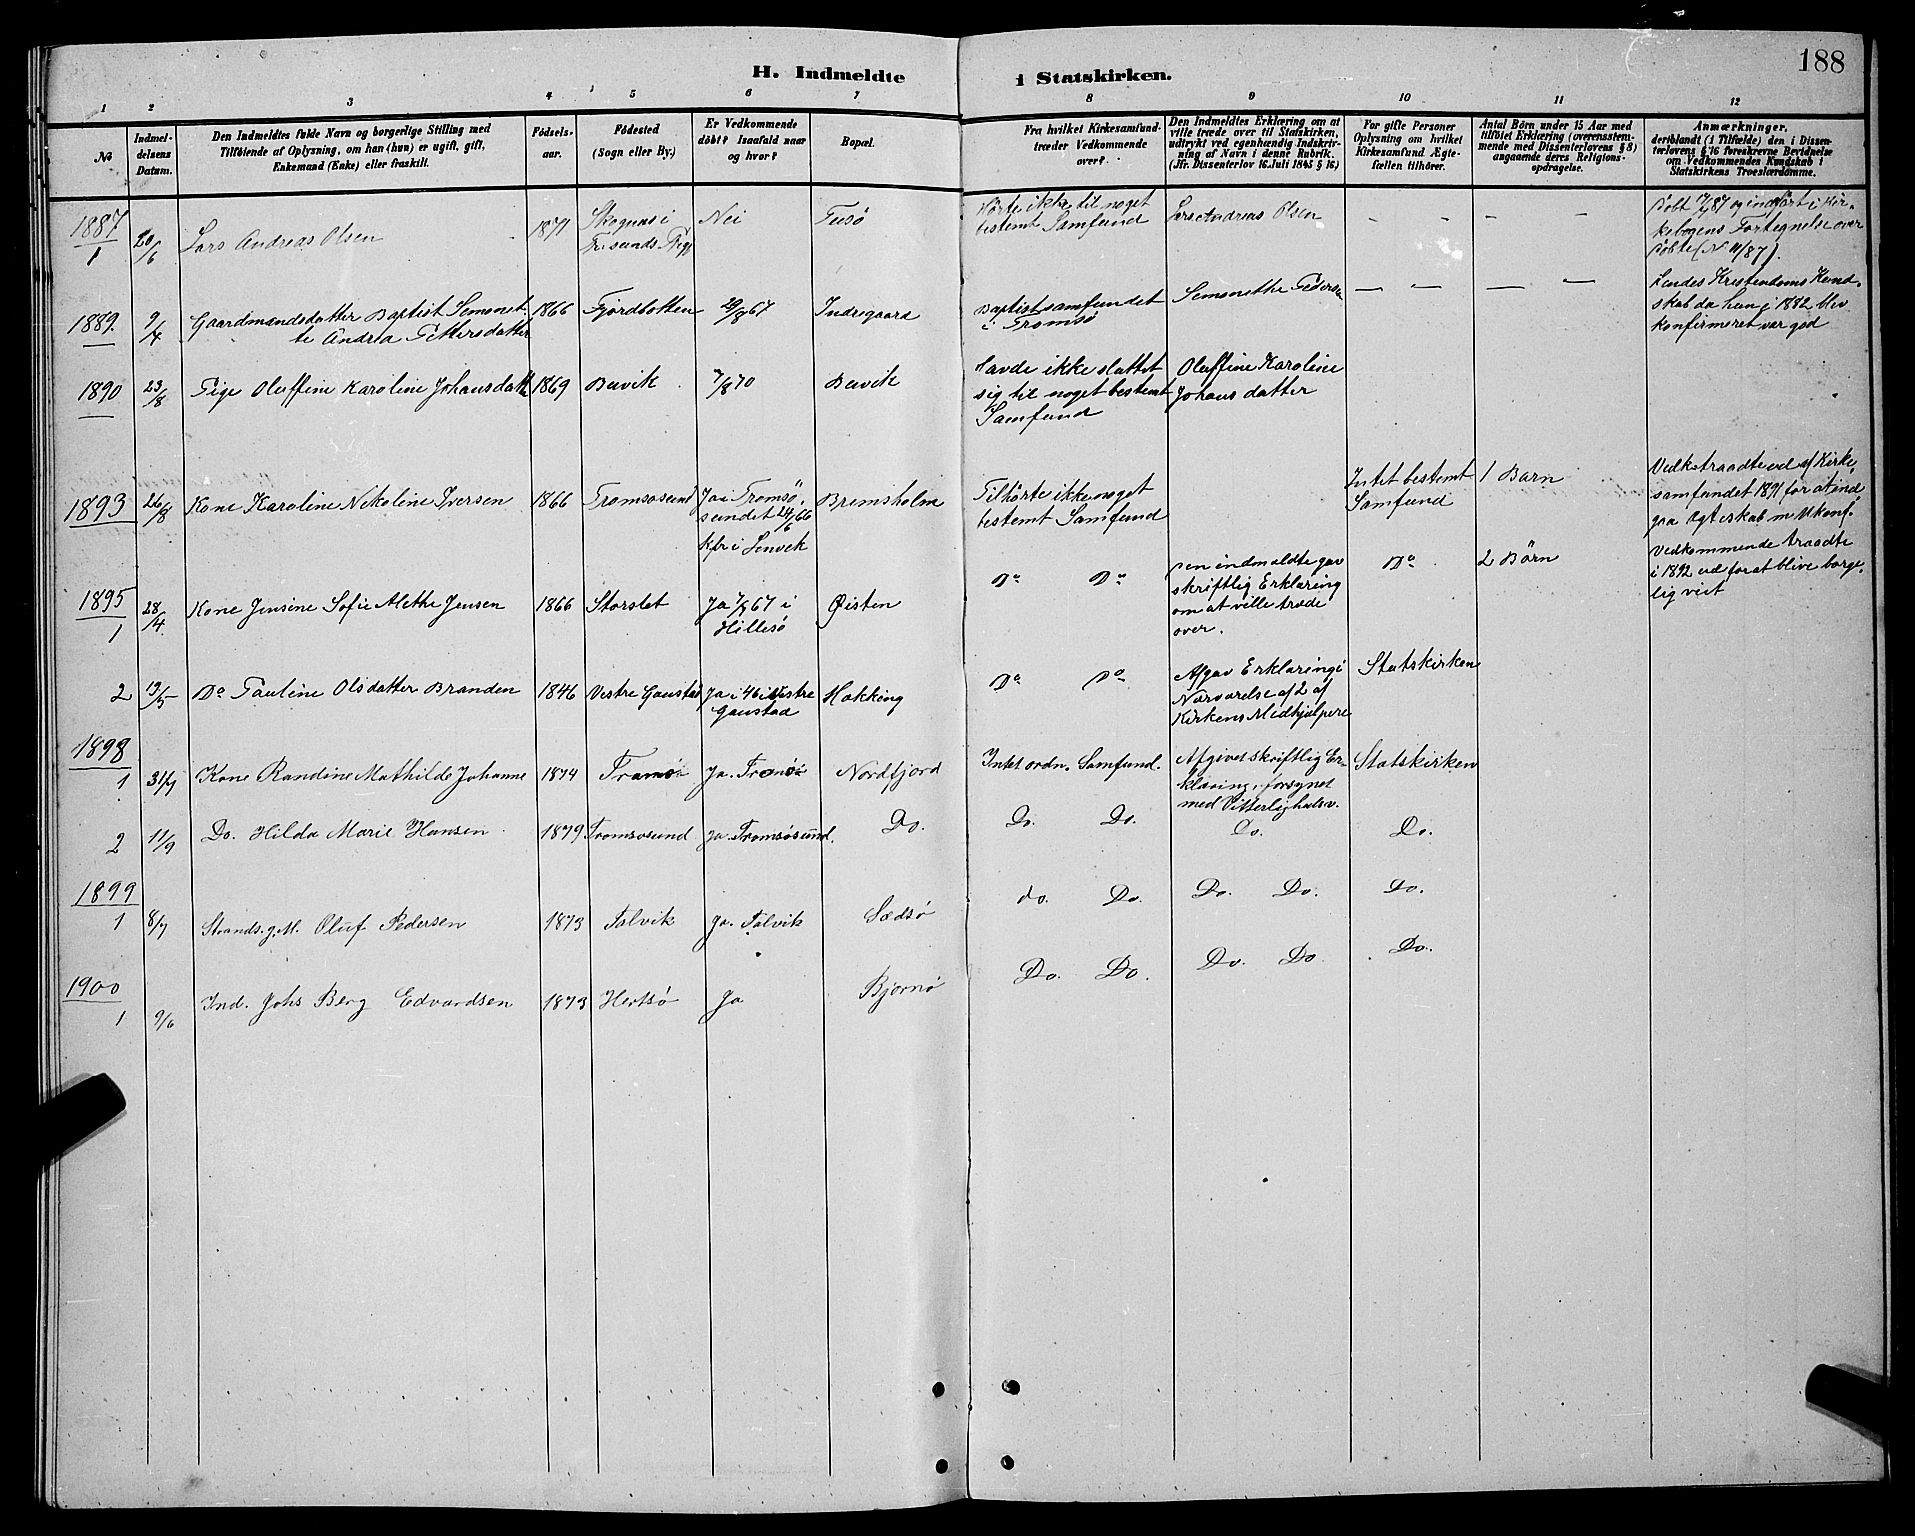 188
H. Indmeldte i Statskirken.
1 2 3 4 5 6 7 8 9 10 11 12
No
Indmeldelsens Datum.
Den Indmeldtes fulde Navn og borgerlige Stilling med
Tilföiende af Oplysning, om han (hun) er ugift, gift,
Enkemand (Enke) eller fraskilt.
Födselsaar.
Födested
(Sogn eller By.)
Er Vedkommende
döbt? Isaafald naar
og hvor?
Bopæl.
Fra hvilket Kirkesamfund
træder Vedkommende
over?
Den Indmeldtes Erklæring om at
ville træde over til Statskirken,
udtrykt ved egenhændig Indskriv-
ning af Navn i denne Rubrik.
(Jfr. Dissenterlov 16. Juli 1845 § 16)
For gifte Personer
Oplysning om hvilket
Kirkesamfund Ægte-
fællen tilhörer.
Antal Börn under 15 Aar med
tilföiet Erklæring (overensstem-
mende med Dissenterlovens § 8)
angaaende deres Religions-
opdragelse.
Anmærkninger,
deriblandt (i Tilfælde) den i Dissen-
terlovens § 16 foreskrevne Bevidnelse
om Vedkommendes Kundskab i
Statskirkens Troeslærdomme.
1887
1 20/6 Lars Andreas Olsen 1871
Skognæs i
Nei
Hörte ikke til noget
bestemt Samfund
Lars Andreas Olsen
- - - -
og indfört i Kir-
kebogens Fortegnelse over
Döbte (N 11/87).
1889. 9/4 Gaardmandsdatter Baptist Semonet-
te Andrea Pettersdatter
1866 Fjordbotten 29/8 67 Indregaard
Baptistsamfundet
i Tromsö
— — — —
Kristendoms Kund-
skab da hun i 1882 blev
konfirmeret var god
1890 23/8 Pige Oluffine Karoline Johansdatter 1869 Buvik 7/8 70 Buvik
Havde ikke sluttet
sig til noget bestemt
Samfund
Oluffine Karoline
Johansdatter
1893 26/8 Kone Karoline Nekoline Iversen 1866 Tromsosund
Ja i Tromsö-
sundet 24/6 66
Kfr i Lenvik
Bremsholm
Tilhörte ikke noget
bestemt Samfund
Intet bestemt
Samfund
1 Barn
Vedk traadte ud af Kirke-
samfundet 1891 for at ind
gaa Ægteskab m Ukonf.
1895
1 28/4 Kone Jensine Sofie Alethe Jensen 1866 Storslet
Ja 7/7 67 i
Hillesö
Øisten
Do Do
Den indmeldte gav
skriftlig Erklæring
om at ville træde
over.
Do
2 Börn
Vedkommende traadte
i 1892 ud for at blive borger-
lig viet
2 19/5 Do Pauline Olsdatter Branden 1846 Vestre Gaustad
Ja i 46 i Vestre
Gaustad
Hakking
Do Do
Afgav Erklæring i
Nærværelse af 2 af
Kirkens Medhjælpere
Statskirken
1898
1 31/7 Kone Randine Mathilde Johanne 1874 Tromsö Ja. Tromsö Nordfjord
Intet ordn. Samfund.
Afgivet skriftlig Er-
klæring, forsynet
med Vitterlighedsv.
Statskirken
2 11/9 Do. Hilda Marie Hansen 1879 Tromsosund Ja. Tromsösund. Do.
Do. Do. Do. Do.
1899
1 8/7 Strands.g.M. Oluf Pedersen 1873 Talvik Ja. Talvik
do. Do. Do. Do. Do.
1900
1 9/6 Ind. Johs Berg Edvardsen 1873 Hertsö Ja Bjornö
Do. Do. Do. Do. Do.